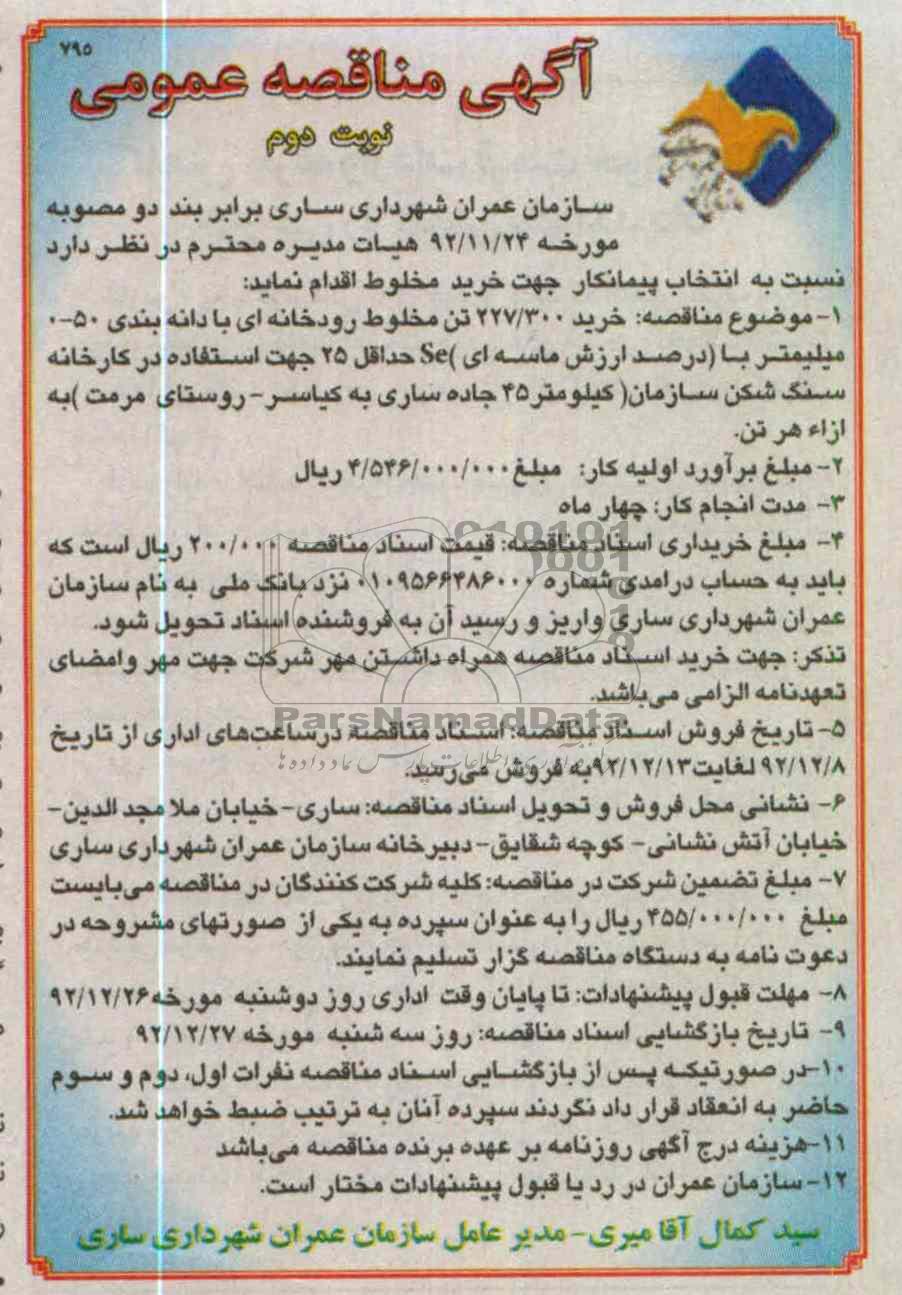 ۷۹۵
آگهی مناقصه عمومی
نوبت دوم
سازمان عمران شهرداری ساری برابر بند دو مصوبه
مورخه ۹۲/۱۱/۲۴ هیات مدیره محترم در نظر دارد
نسبت به انتخاب پیمانکار جهت خرید مخلوط اقدام نماید:
۱-موضوع مناقصه: خرید ۲۲۷/۳۰۰ تن مخلوط رودخانه ای با دانه بندی ۵۰-۰
میلیمتر با (درصد ارزش ماسه ای )Se حداقل ۲۵ جهت استفاده در کارخانه
سنگ شکن سازمان( کیلومتر۴۵ جاده ساری به کیاسر-روستای مرمت )به
ازاء هر تن.
۲-مبلغ برآورد اولیه کار: مبلغ۴/۵۴۶/۰۰۰/۰۰۰ ریال
۳- مدت انجام کار: چهار ماه
۴- مبلغ خریداری اسناد مناقصه: قیمت اسناد مناقصه ۲۰۰/۰۰۰ ریال است که
باید به حساب درامدی شماره ۰۱۰۹۵۶۶۴۸۶۰۰۰ نزد بانک ملی به نام سازمان
عمران شهرداری ساری واریز و رسید آن به فروشنده اسناد تحویل شود.
تذکر: جهت خرید اسناد مناقصه همراه داشتن مهر شرکت جهت مهر وامضای
تعهدنامه الزامی می‌باشد.
ParsNamadData
۵- تاریخ فروش اسناد مناقصه: اسناد مناقصه درساعت‌های اداری از تاریخ
۹۲/۱۲/۸ لغایت۹۲/۱۲/۱۳به فروش می‌رسد.
۶- نشانی محل فروش و تحویل اسناد مناقصه: ساری-خیابان ملا مجد الدین-
خیابان آتش نشانی- کوچه شقایق-دبیرخانه سازمان عمران شهرداری ساری
۷- مبلغ تضمین شرکت در مناقصه: کلیه شرکت کنندگان در مناقصه می‌بایست
مبلغ ۴۵۵/۰۰۰/۰۰۰ ریال را به عنوان سپرده به یکی از صورتهای مشروحه در
دعوت نامه به دستگاه مناقصه گزار تسلیم نمایند.
۸- مهلت قبول پیشنهادات: تا پایان وقت اداری روز دوشنبه مورخه۹۲/۱۲/۲۶
۹- تاریخ بازگشایی اسناد مناقصه: روز سه شنبه مورخه ۹۲/۱۲/۲۷
۱۰-در صورتیکه پس از بازگشایی اسناد مناقصه نفرات اول، دوم و سوم
حاضر به انعقاد قرار داد نگردند سپرده آنان به ترتیب ضبط خواهد شد.
۱۱-هزینه درج آگهی روزنامه بر عهده برنده مناقصه می‌باشد
۱۲-سازمان عمران در رد یا قبول پیشنهادات مختار است.
سید کمال آقا میری-مدیر عامل سازمان عمران شهرداری ساری